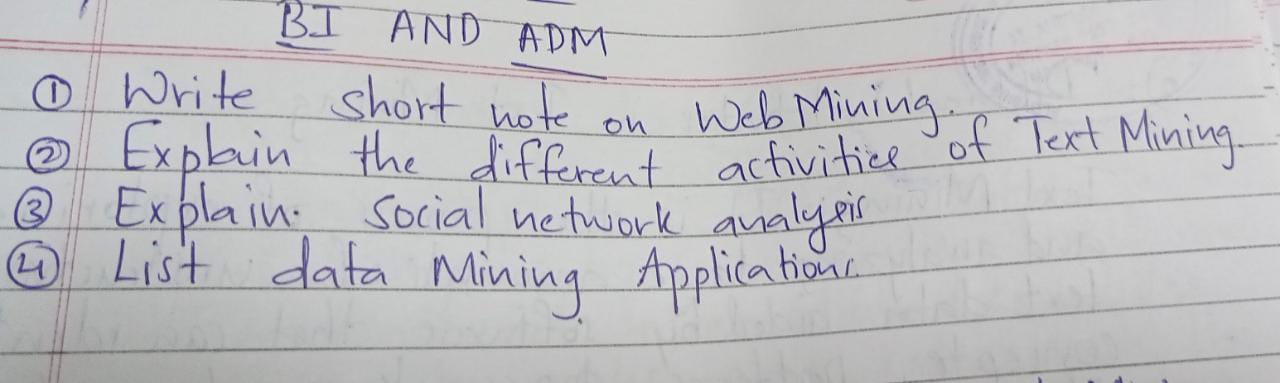 BI AND ADM
① Write short note on Web Mining.
② Explain the different activities of Text Mining.
③ Explain. Social network analysis
④ List data Mining Applications.